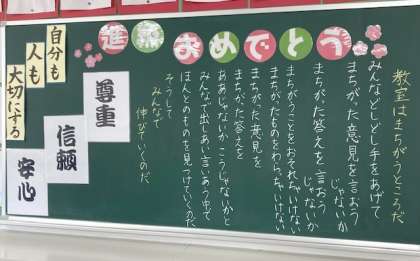 進級おめでとう
教室はまちがうところだ
みんなどしどし手をあげて
まちがった意見を言おう
じゃないか
まちがった答えを言おう
じゃないか
まちがうことをおそれちゃいけない
まちがったものをわらっちゃいけない
まちがった意見を
まちがった答えを
ああじゃないかこうじゃないかと
みんなで出しあい言いあう中で
ほんとのものを見つけていくのだ
そうして
みんなで
伸びていくのだ
尊重
信頼
安心
自分も
人も
大切にする